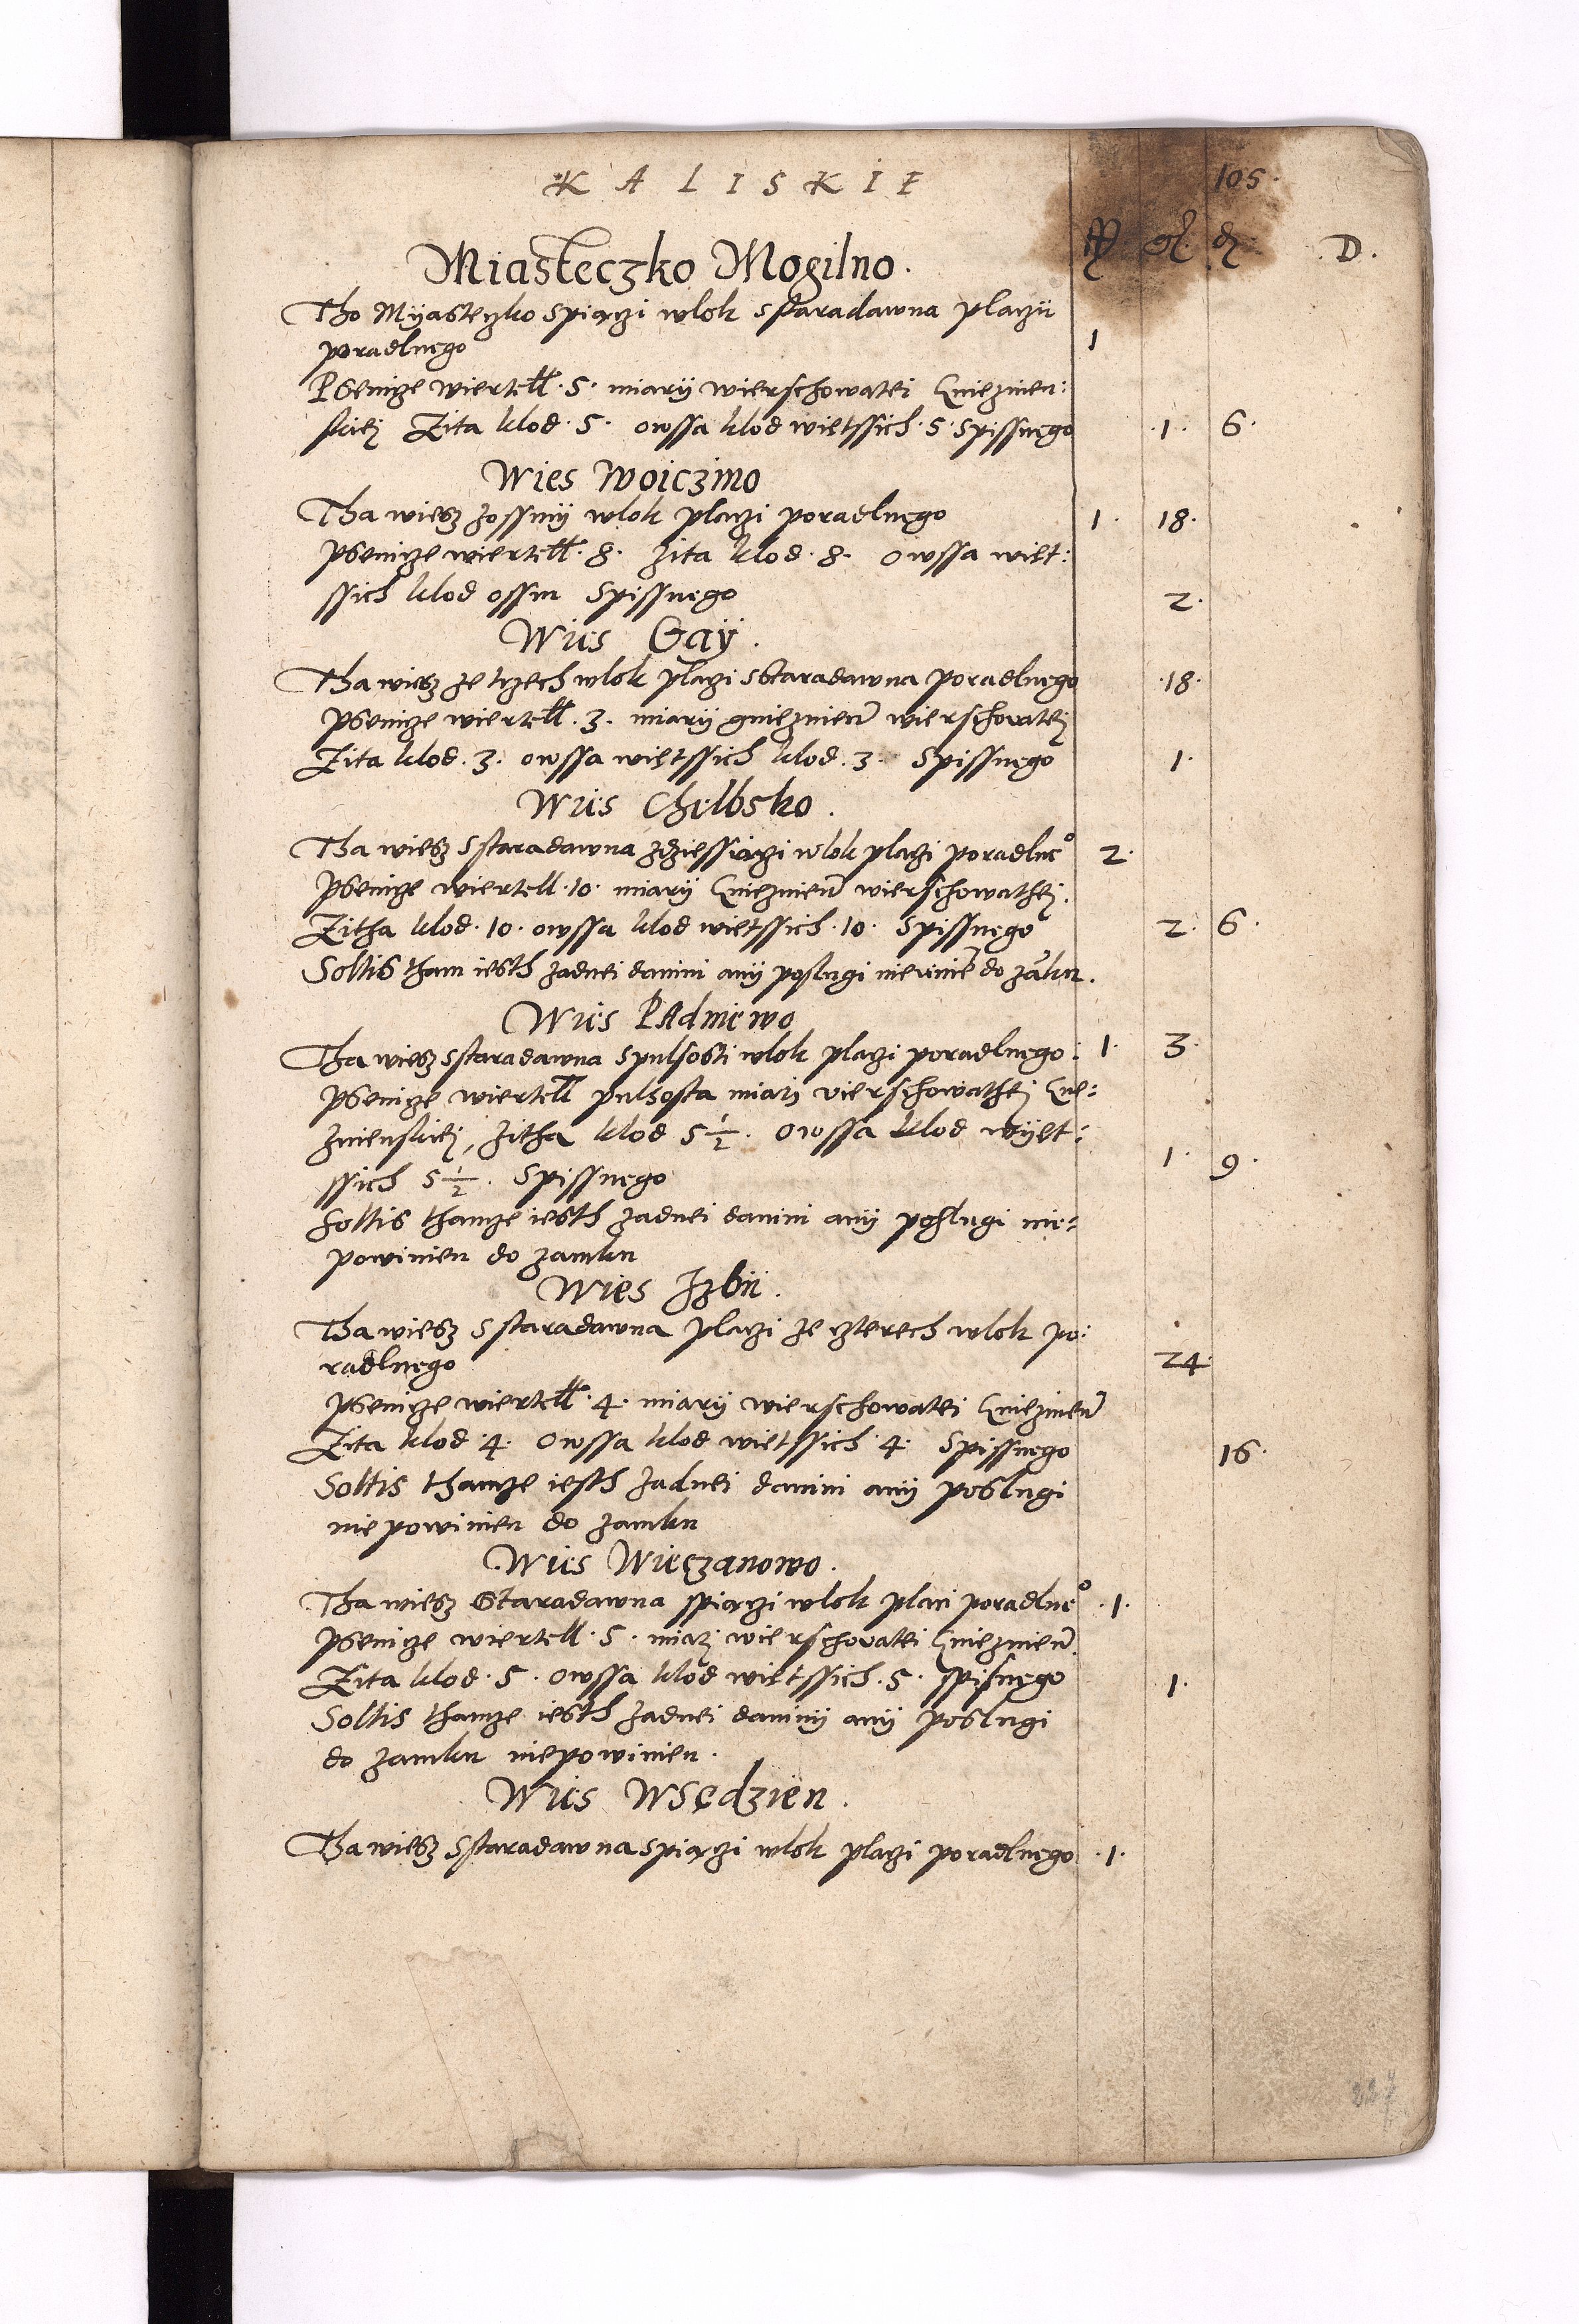 KALISKIE
105.
gr. d. D.
Miasteczko Mogilno.
Tho Myasteczko spiączi wlok sstaradawna placzii
poradlnego 1
Psenicze wiertell. 5. miarÿ wierschowatei Gnieznen:
skiej Zita klod. 5. owssa klod wietssich. 5. Spissnego .1. 6.
Wies Woiczino
Tha wiesz zossmÿ wlok placzi poradlnego 1. 18.
psenicze wiertell. 8. zita klod. 8. owssa wiet:
ssich klod ossm Spissnego 2.
Wies Gaÿ.
Tha wiesz ze trzech wlok placzi sstaradawna poradlnego .18.
psenicze wiertell. 3. miarÿ gnieznien wierschowatej
Zita klod. 3. owssa wietssich klod. 3. Spissnego 1.
Wies Chelbsko.
Tha wiesz sstaradawna zdziessiączi wlok placzi poradlne° 2.
psenicze wiertell. 10. miarÿ Gnieznien wierschowathej.
Zitha klod. 10. owssa klod wietssich. 10. Spissnego 2. 6.
Soltis tham iesth zadnei danini anÿ poslugi niewinie do zaku.
Wies PAdniewo
Tha wiesz sstaradawna spulsosti wlok placzi poradlnego: 1. 3.
psenicze wiertell pulsosta miarj vierschowathej Gne:
znienskiej, zitha klod 5 1/2. owssa klod wÿet:
ssich 5 1/2. Spissnego 1. 9.
soltis thamze iesth zadnei danini anÿ poslugi nie:
powinien do zamku
Wies Izbii.
Tha wiesz sstaradawna placzi ze czterech wlok po:
radlnego 24.
psenicze wiertell. 4. miarÿ wierschowatei Gnieznien
Zita klod. 4. owssa klod wietssich. 4. Spissnego 16.
Soltis thamze iesth zadnei danini anÿ poslugi
nie powinien do zamku
Wies Wieczanowo.
Tha wiesz Staradawna spiączi wlok placi poradlne° .1.
psenicze wiertell. 5. miarj wierschovatei Gnieznien
Zita klod. 5. owssa klod wietssich. 5. spisnego 1.
Soltis thamze iesth zadnei daninÿ anÿ poslugi
do zamku niepowinien.
Wies WSędzien.
Tha wiesz sstaradawna spiączi wlok placzi poradlnego .1.